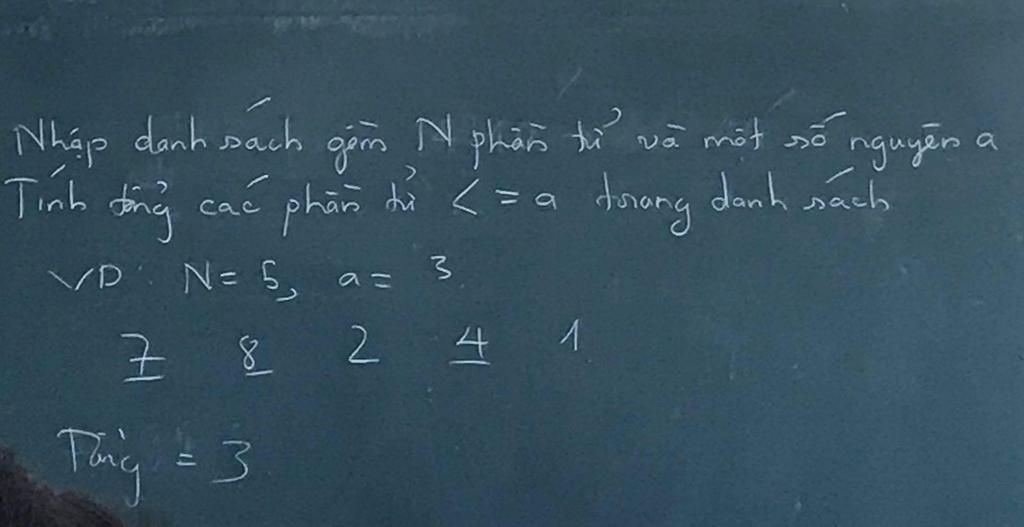 Nhập danh sách gồm N phần tử và một số nguyên a
Tính tổng các phần tử <= a trong danh sách
VD: N = 5, a = 3
7 8 2 4 1
Tổng = 3